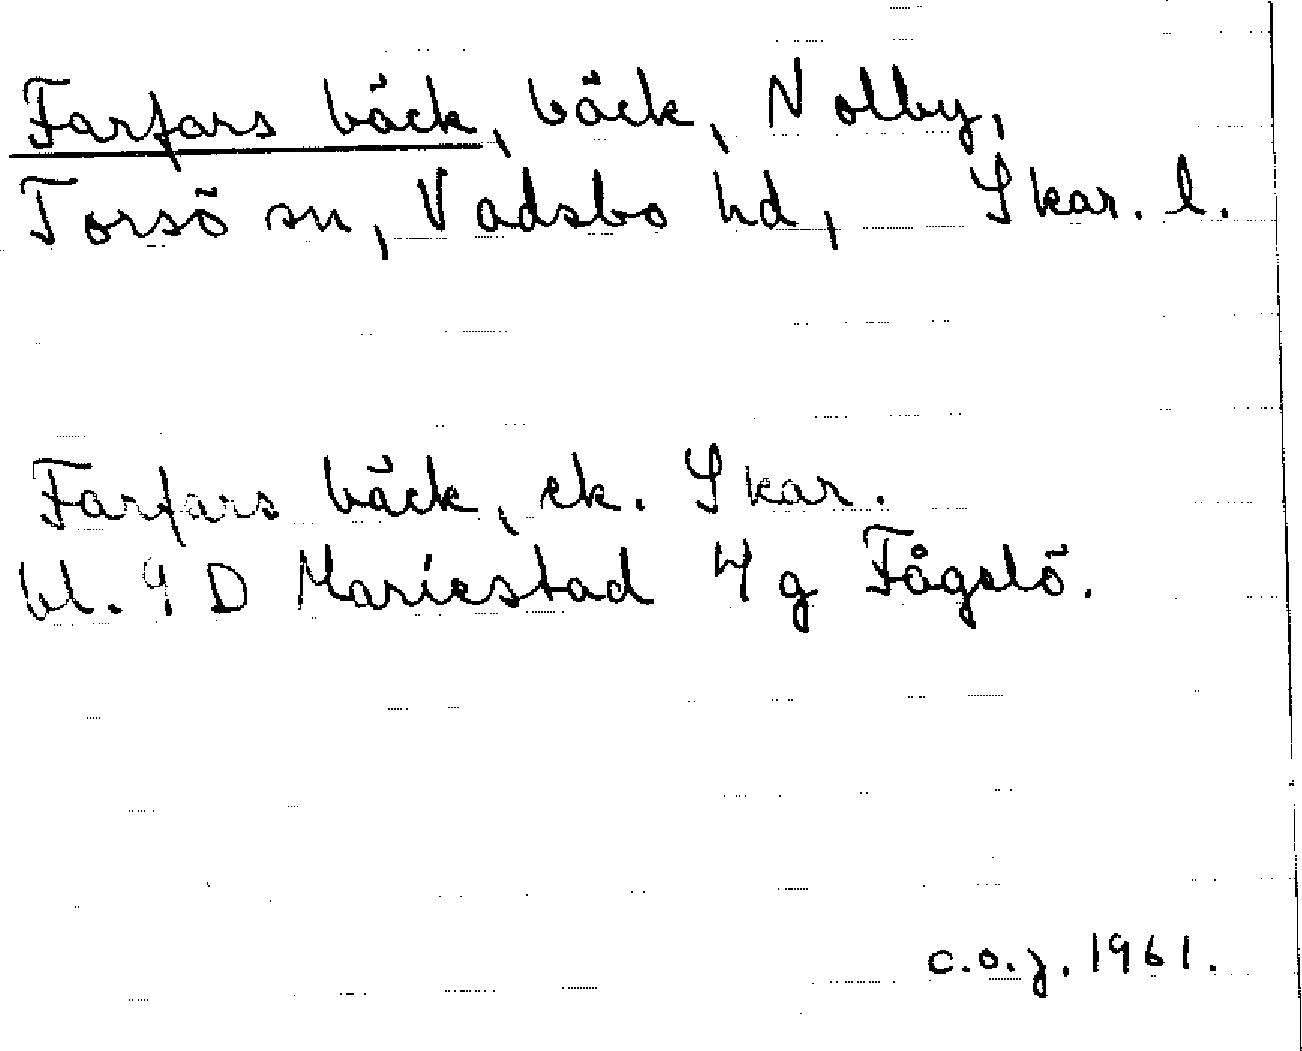 Farfars bäck, bäck, Nolby,
Torsö sn, Vadsbo hd, Skar. l.
Farfars bäck, ek. Skar.
bl. 9 D Mariestad 4 g Fågelö.
C.O.J. 1961.